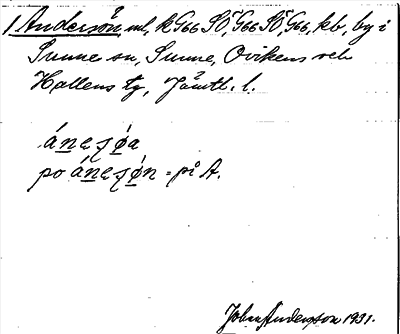 1 Andersön ml, k G66 SO, G66 SÖ, G66, kb, by i
Sunne sn, Sunne, Ovikens och
Hallens tg, Jämtl. l.
ánęsǿa
po ánęsǿn = på A.
Johan Anderson 1931.